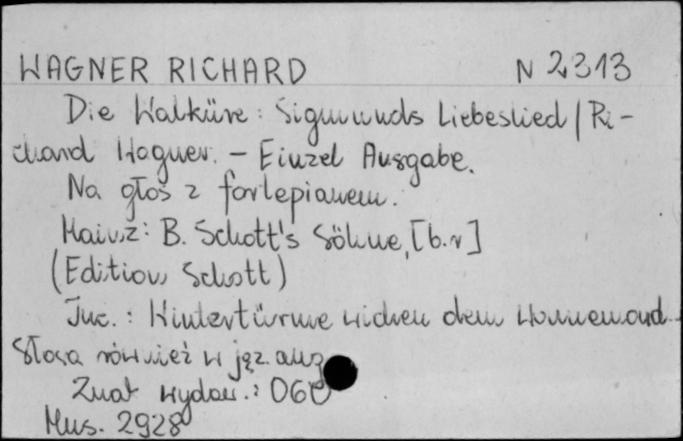 WAGNER RICHARD N 2313
Die Walküre : Sigmunds Liebeslied / Ri-
chard Wagner. - Einzel Ausgabe.
Na głos z fortepianem.
Mainz : B. Schott's Söhne, [b.r]
(Edition Schott)
Inc. : Winterstürme wichen dem Wonnemond
Słowa również w jęz. ang
Znak wydaw. : 060
Mus. 2928